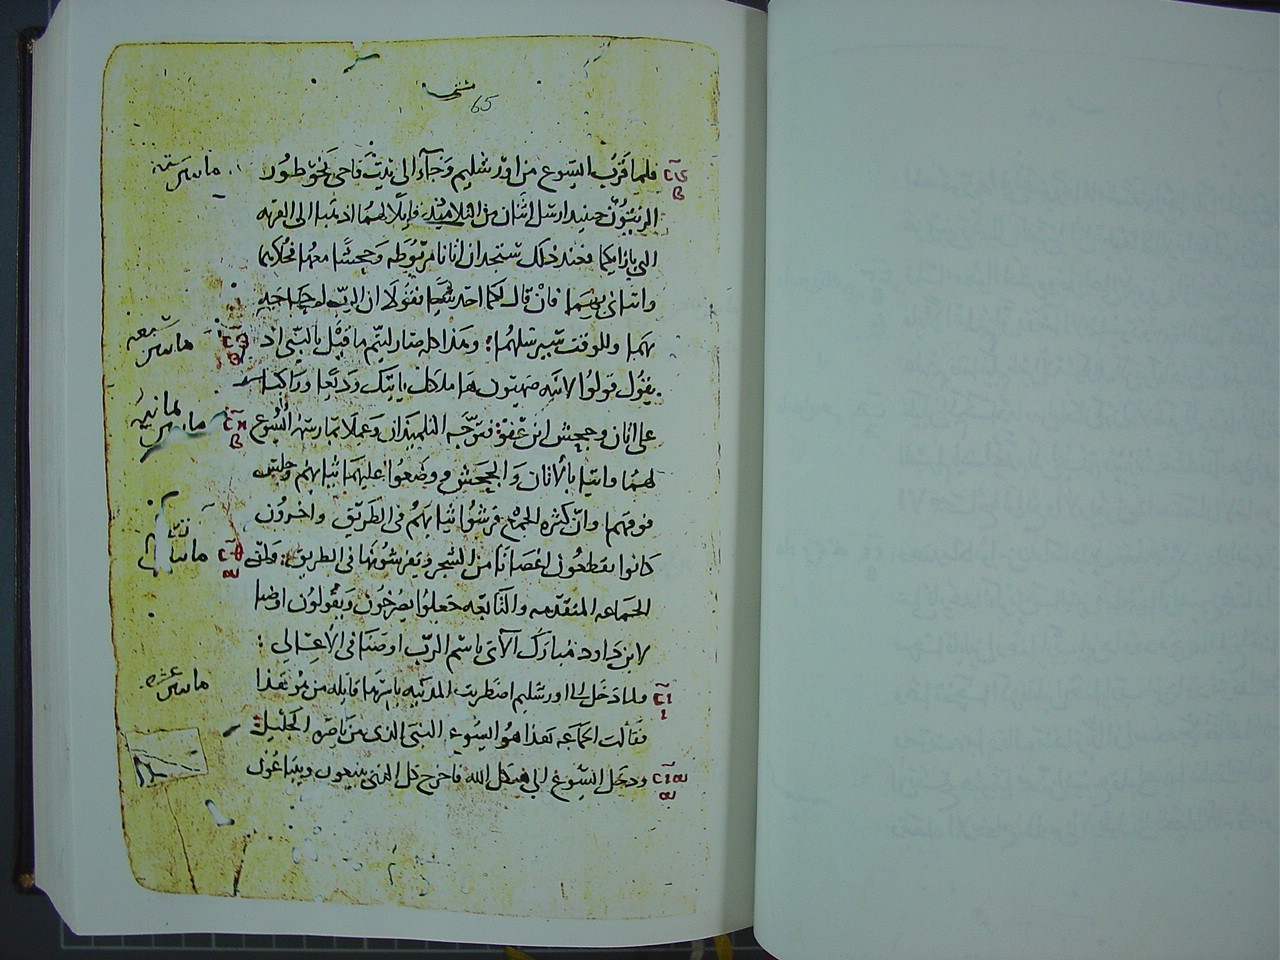 متى
65
فلما قرب ايسوع من اورشليم وجآء الى بيت فاجى نحو طور
مايتين ستة
الزيتون حينيد ارسل اثنان من التلاميد قايلا لهما اذهبا الى القريه
التي بازايكما فعند ذلك ستجدان اتانا مربوطه وجحشا معها فحلاهما
واتياني بهما فان قال لكما احد شيا فقولا ان الرب له حاجه
بهما وللوقت سيرسلهما وهذا كله صار ليتم ما قيل بالنبي اذ
مايتين سبعه
يقول قولوا لابنة صهيون ها ملكك ياتيك وديعا وراكبا
على اتان وجحش ابن عفو فتوجه التلميذان وعملا بما رسم ايسوع
مايتين ثمانيه
لهما واتيا بالاتان والجحش ووضعوا عليهما ثيابهم وجلس
فوقهما وان كثره الجمع فرشوا ثيابهم في الطريق واخرون
كانوا يقطعون اغصانا من الشجر ويفرشونها في الطريق
الجماعه المتقدمه والتابعه جعلوا يصرخون ويقولون اوصنا
لابن داود مبارك الآتي باسم الرب اوصنا في الاعالي :
فلما دخل الى اورشليم اضطربت المدينه باسرها قايله من هو هذا
مايتين عشره
فقالت الجماعه هذا هو ايسوع النبي الذي من ناصرة الجليل
ودخل ايسوع الى هيكل الله فاخرج كل الذين يبيعون ويبتاعون